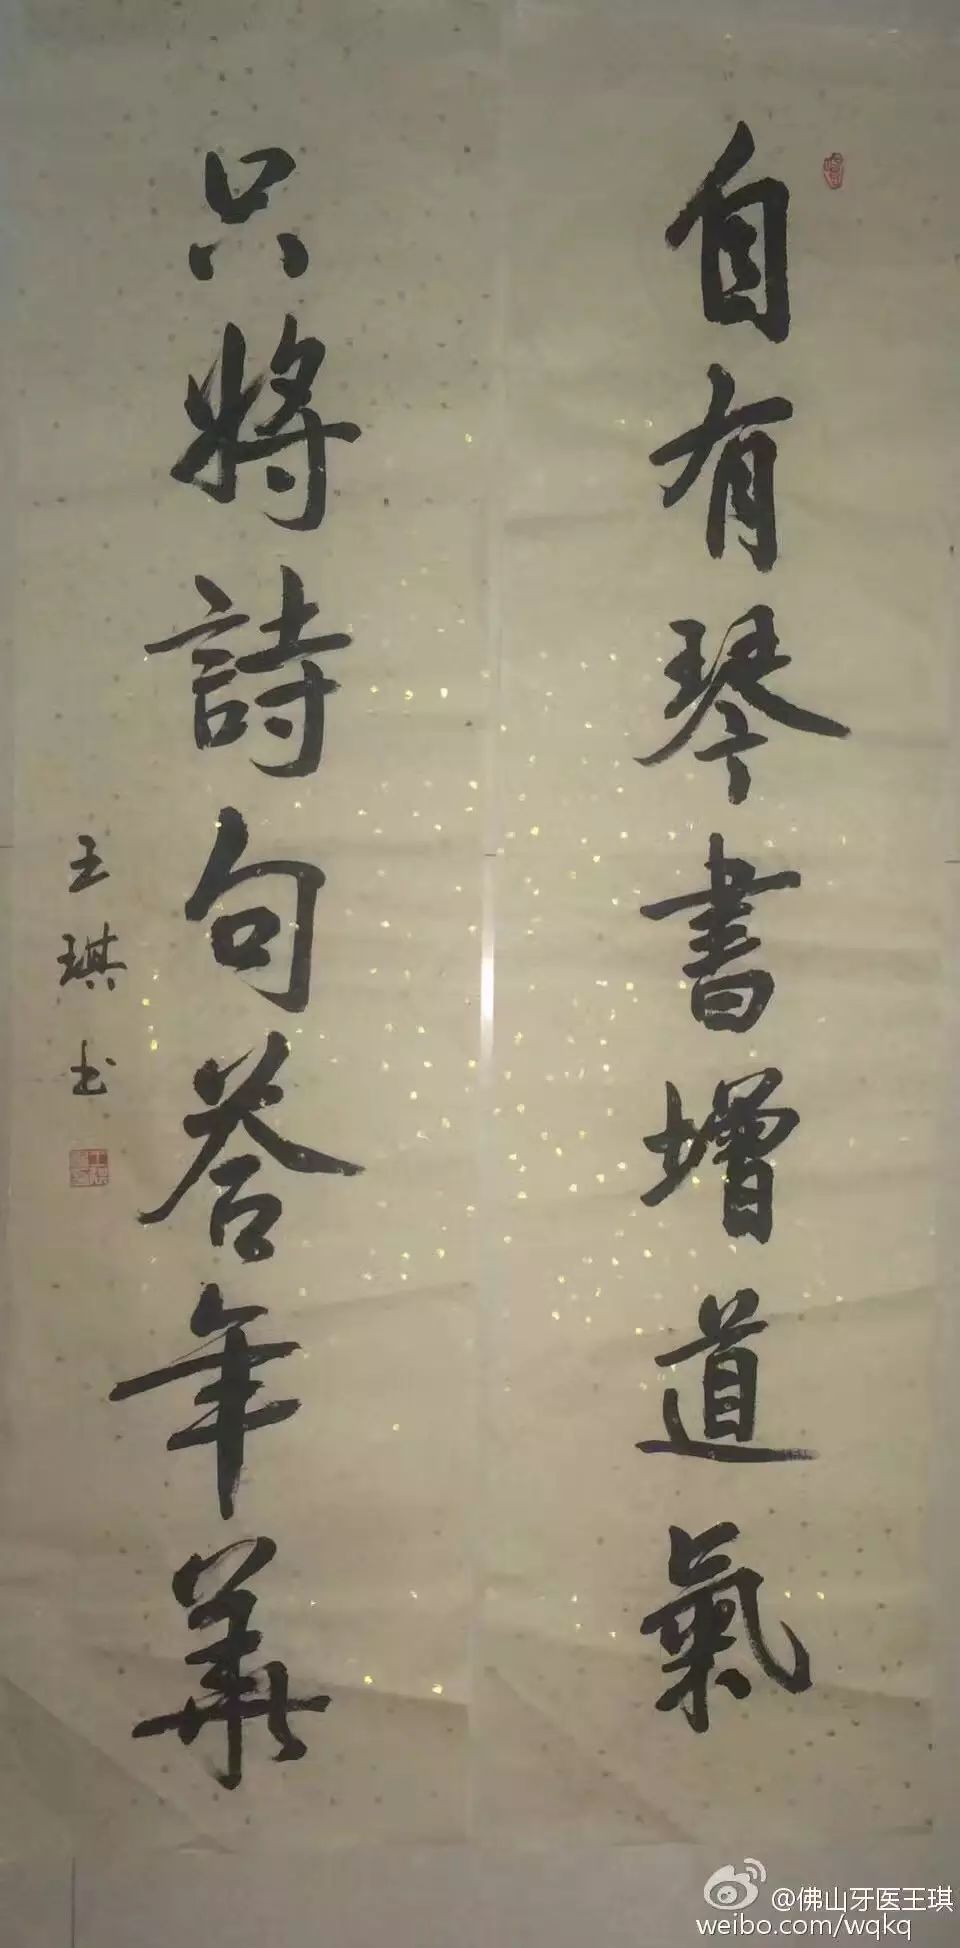 自有琴書增道氣
只將詩句答年華
王琪书
@佛山牙医王琪
weibo.com/wqkq